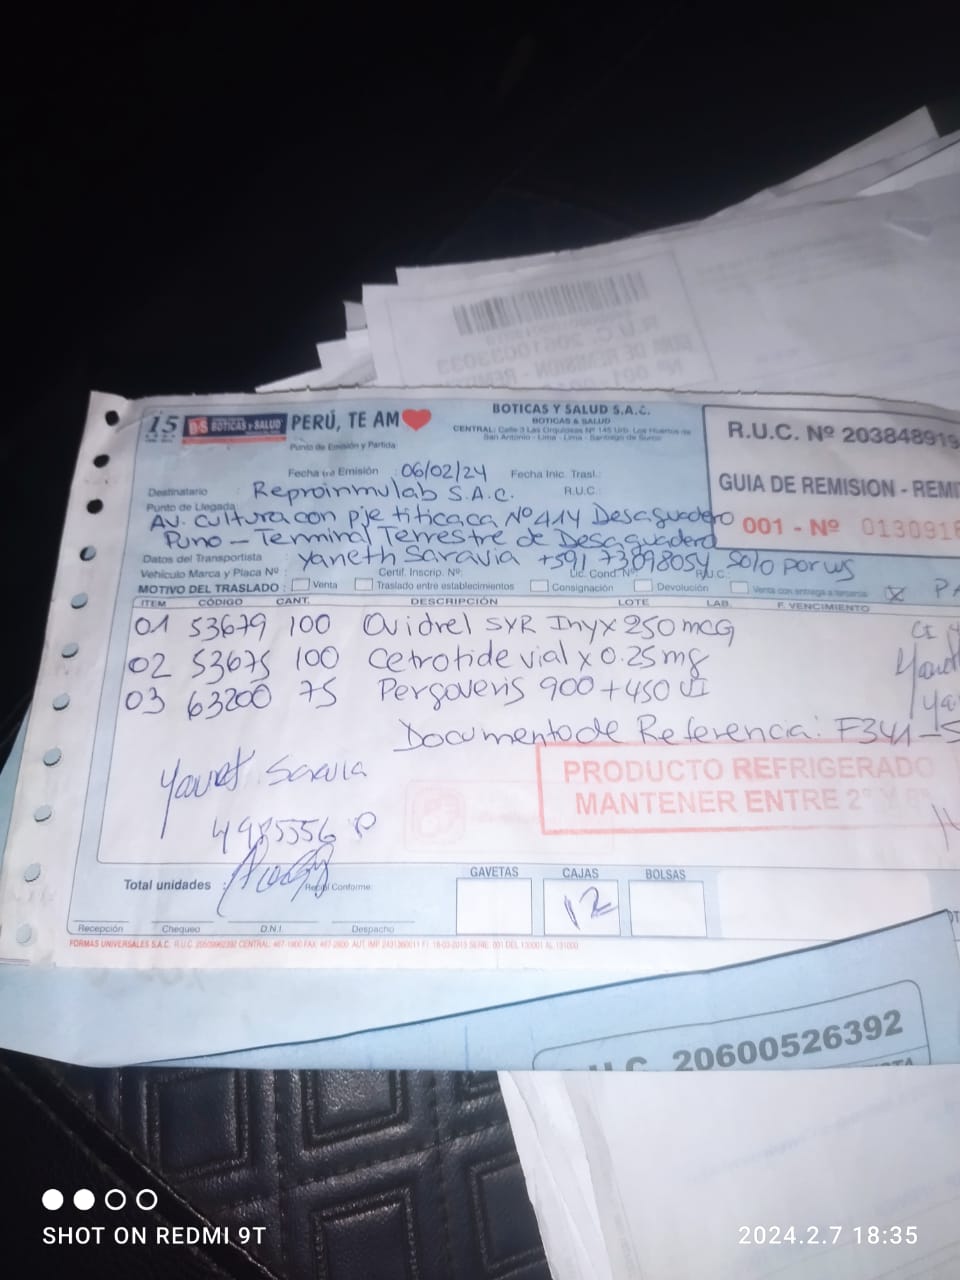 15
BS BOTICAS Y SALUD PERÚ, TE AM
BOTICAS Y SALUD S.A.C.
BOTICAS & SALUD
CENTRAL: Calle 3 Las Orquideas Nº 145 Urb. Los Huertos de
San Antonio - Lima - Lima - Santiago de Surco
Punto de Emisión y Partida
R.U.C. Nº 203848919
GUIA DE REMISION - REMI
001 - Nº 0130918
Fecha de Emisión : 06/02/24 Fecha Inic. Trasl.:
Destinatario : Reproinmulab S.A.C. R.U.C.:
Punto de Llegada
Av. Cultura con pje titicaca Nº 414 Desaguadero
Puno - Terminal Terrestre de Desaguadero
Datos del Transportista : Yaneth Saravia +591 73098054 solo por ws
Vehículo Marca y Placa Nº : Certif. Inscrip. Nº: Lic. Cond. Nº: R.U.C.:
MOTIVO DEL TRASLADO : Venta Traslado entre establecimientos Consignación Devolución Venta con entrega a terceros X PA
ITEM CÓDIGO CANT. DESCRIPCIÓN LOTE LAB. F. VENCIMIENTO
01 53679 100 Ovidrel SYR Iny x 250 mcg
02 53675 100 Cetrotide vial x 0.25 mg
03 63200 75 Pergoveris 900 + 450 UI
CI 4
Yanet
Ya
Documento de Referencia: F341-5
PRODUCTO REFRIGERADO
MANTENER ENTRE 2° Y 8°
Yanet Saravia
4985556 P
Total unidades :
Recibí Conforme:
GAVETAS CAJAS BOLSAS
12
Recepción Chequeo D.N.I. Despacho
FORMAS UNIVERSALES S.A.C. R.U.C. 20509962392 CENTRAL: 467-1900 FAX: 467-2600 AUT. IMP. 2431360011 F.I. 18-03-2013 SERIE: 001 DEL 130001 AL 131000
20600526392
SHOT ON REDMI 9T
2024.2.7 18:35